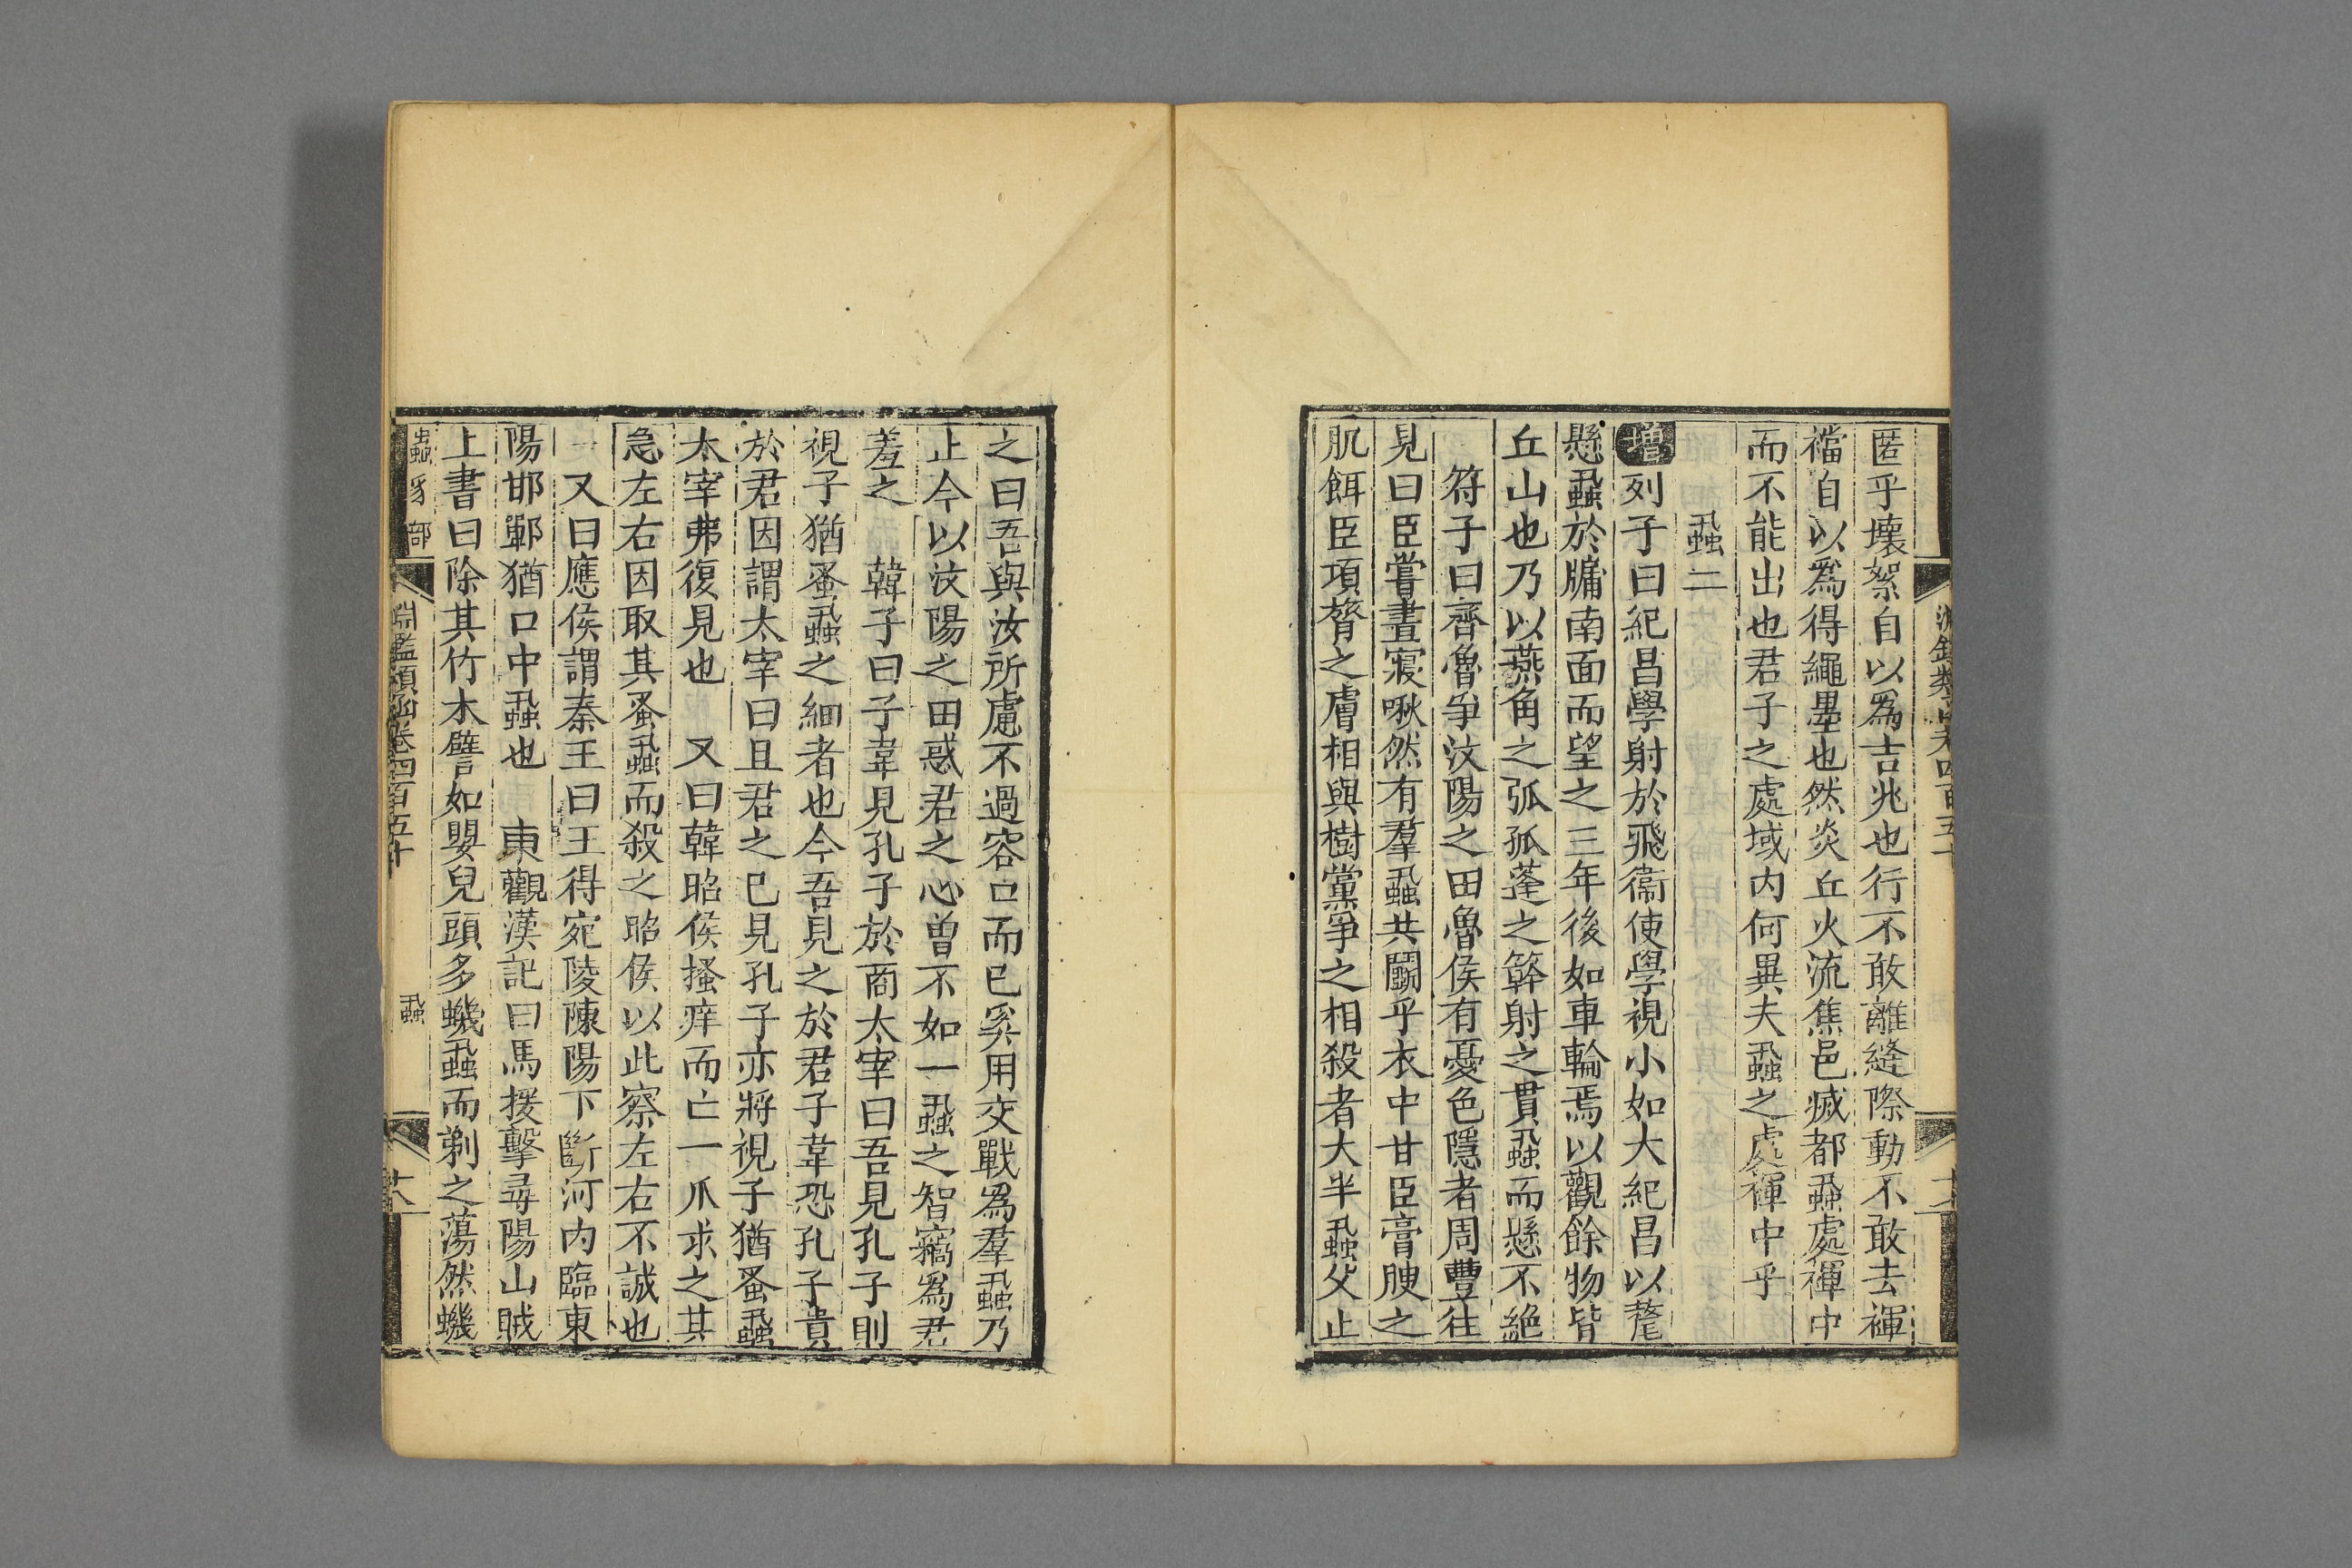 匿乎壞絮自以爲吉兆也行不敢離縫際動不敢去褌
襠自以爲得繩墨也然炎丘火流焦邑滅都蝨處褌中
而不能出也君子之處域内何異夫蝨之處褌中乎
蝨二
增列子曰紀昌學射於飛衞使學視小如大紀昌以氂
懸蝨於牖南面而望之三年後如車輪焉以觀餘物皆
丘山也乃以燕角之弧孤蓬之簳射之貫蝨而懸不絶
符子曰齊魯爭汶陽之田魯侯有憂色隱者周豐往
見曰臣嘗晝寢啾然有羣蝨共鬬乎衣中甘臣膏腴之
肌餌臣項膂之膚相與樹黨爭之相殺者大半蝨父止
之曰吾與汝所慮不過容口而已奚用交戰爲羣蝨乃
止今以汶陽之田惑君之心曾不如一蝨之智竊爲君
羞之　韓子曰子韋見孔子於商太宰曰吾見孔子則
視子猶蚤蝨之細者也今吾見之於君子韋恐孔子貴
於君因謂太宰曰且君之已見孔子亦將視子猶蚤蝨
太宰弗復見也　又曰韓昭侯搔痒而亡一爪求之其
急左右因取其蚤蝨而殺之昭侯以此察左右不誠也
又曰應侯謂秦王曰王得宛陵陳陽下斷河内臨東
陽邯鄲猶口中蝨也　東觀漢記曰馬援擊尋陽山賊
上書曰除其竹木譬如嬰兒頭多蟣蝨而剃之蕩然蟣
蟲豸部　淵鑑類函卷四百五十　蝨